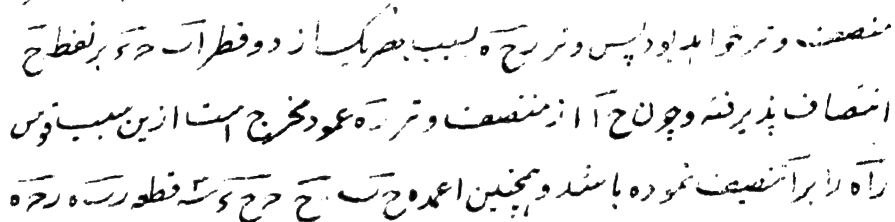 منصف وتر خواهد بود پس وتر رح ه بسبب هر یک از دو قطر ا ب ح ء بر نقطه ح
انتصاف پذیرفته و چون ح ا از منتصف وتر ر ه عمود مخرج است ازین سبب قوس
را ه را بر ا تنصیف نموده باشد و همچنین اعمده ح ب ح ح ح ء سه قطعه